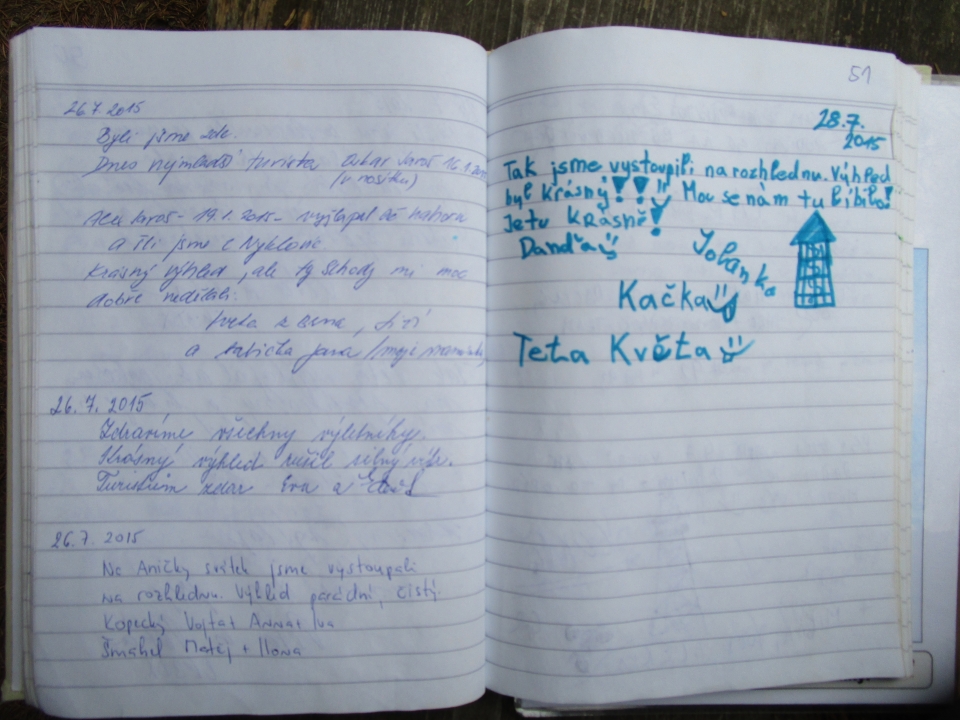 26.7.2015
Byli jsme zde.
Dnes nejmladší turista Oskar Jaroš 16.1.2015
(v nosítku)
Jaroš - 19.1.2015 - vyšlapal až nahoru
a šli jsme z
Krásný výhled, ale ty schody mi moc
dobře nedělali.
a babička Jana
26.7. 2015
Zdravíme všechny výletníky.
Krásný výhled rušil silný vítr.
Turistům zdar Eva a
26.7. 2015
Na Aničky svátek jsme vystoupali
na rozhlednu. Výhled parádní, čistý.
Kopecký Vojta+ Anna+ Iva
Šmahel Matěj + Ilona
51
28.7.
2015
Tak jsme vystoupili na rozhlednu. Výhled
byl krásný!!! Moc se nám tu líbilo!
Je tu KRASNĚ!
Danďa
Jolanka
Kačka
Teta Květa